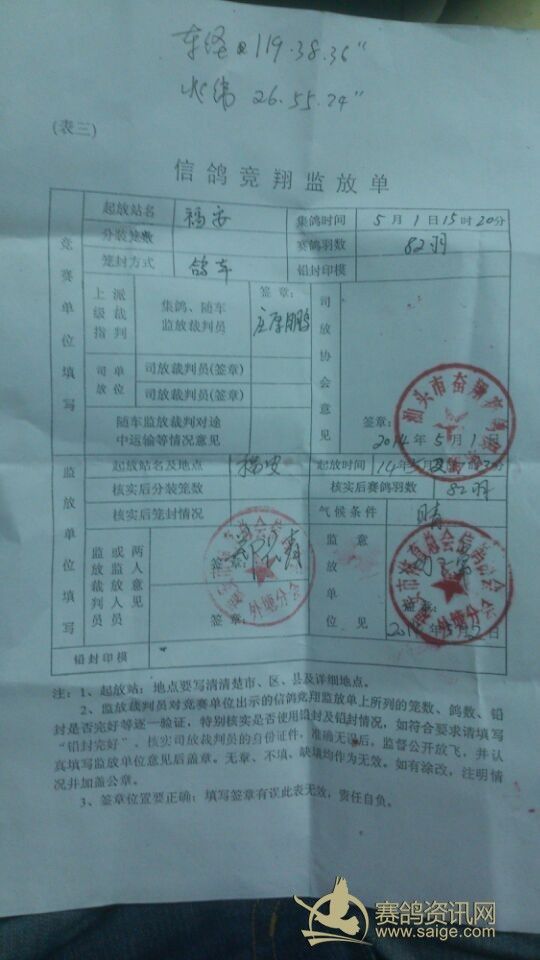 东经 119.38.36"
北纬 26.55.24"
(表三)
信鸽竞翔监放单
竞赛单位填写
起放站名 福安 集鸽时间 5月1日15时20分
分装笼数 赛鸽羽数 82羽
笼封方式 鸽车 铅封印模
上级指派裁判 集鸽、随车监放裁判员 签章:
司放单位 司放裁判员(签章)
司放裁判员(签章)
司放协会意见 签章:
2014年5月1日
随车监放裁判对途中运输等情况意见
汕头市奋翔
监放单位填写
起放站名及地点 福安 起放时间 14年5月
核实后分装笼数 核实后赛鸽羽数 82羽
核实后笼封情况 气候条件 晴
监放裁判员或两人监放人员意见 签章:
签章:
监放单位意见 签章:
外塘分会
外塘分会
铅封印模
注:1、起放站:地点要写清清楚市、区、县及详细地点。
2、监放裁判员对竞赛单位出示的信鸽竞翔监放单上所列的笼数、鸽数、铅
封是否完好等逐一验证,特别核实是否使用铅封及铅封情况,如符合要求请填写
“铅封完好”、核实司放裁判员的身份证件,准确无误后,监督公开放飞,并认
真填写监放单位意见后盖章。无章、不填、缺填均作为无效。如有涂改,注明情
况并加盖公章。
3、签章位置要正确;填写签章有误此表无效,责任自负。
赛鸽资讯网
www.saige.com